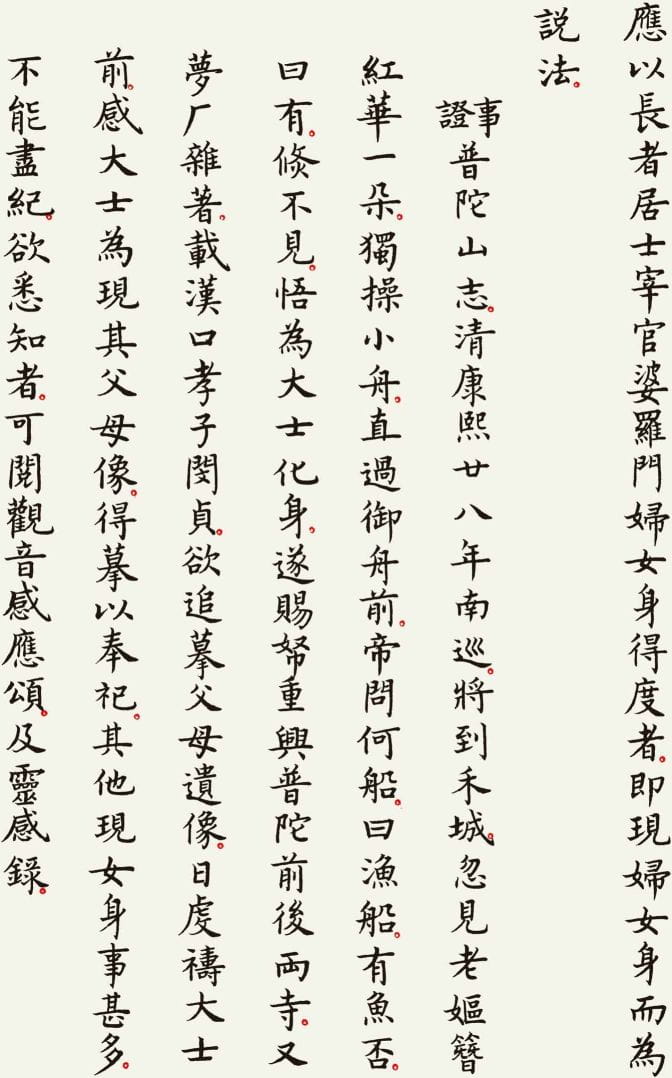 應以長者居士宰官婆羅門婦女身得度者。即現婦女身而為
説法。
事證普陀山志。清康熙廿八年南巡。將到禾城。忽見老嫗簪
紅華一朵。獨操小舟。直過御舟前。帝問何船。曰漁船。有魚否。
曰有。倏不見。悟為大士化身。遂賜帑重興普陀前後兩寺。又
夢厂雜著。載漢口孝子閔貞。欲追摹父母遺像。日虔禱大士
前。感大士為現其父母像。得摹以奉祀。其他現女身事甚多。
不能盡紀。欲悉知者。可閱觀音感應頌。及靈感錄。